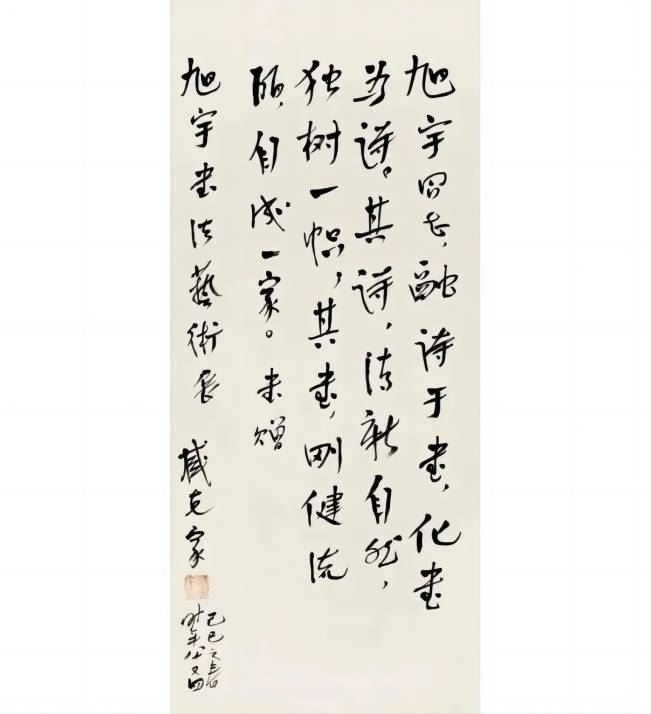 旭宇同志，融诗于書，化書
为诗。其诗，清新自然，
独树一帜，其書，刚健流
丽，自成一家。書赠
旭宇書法藝術展 臧克家
己巳之春
时年八十又四